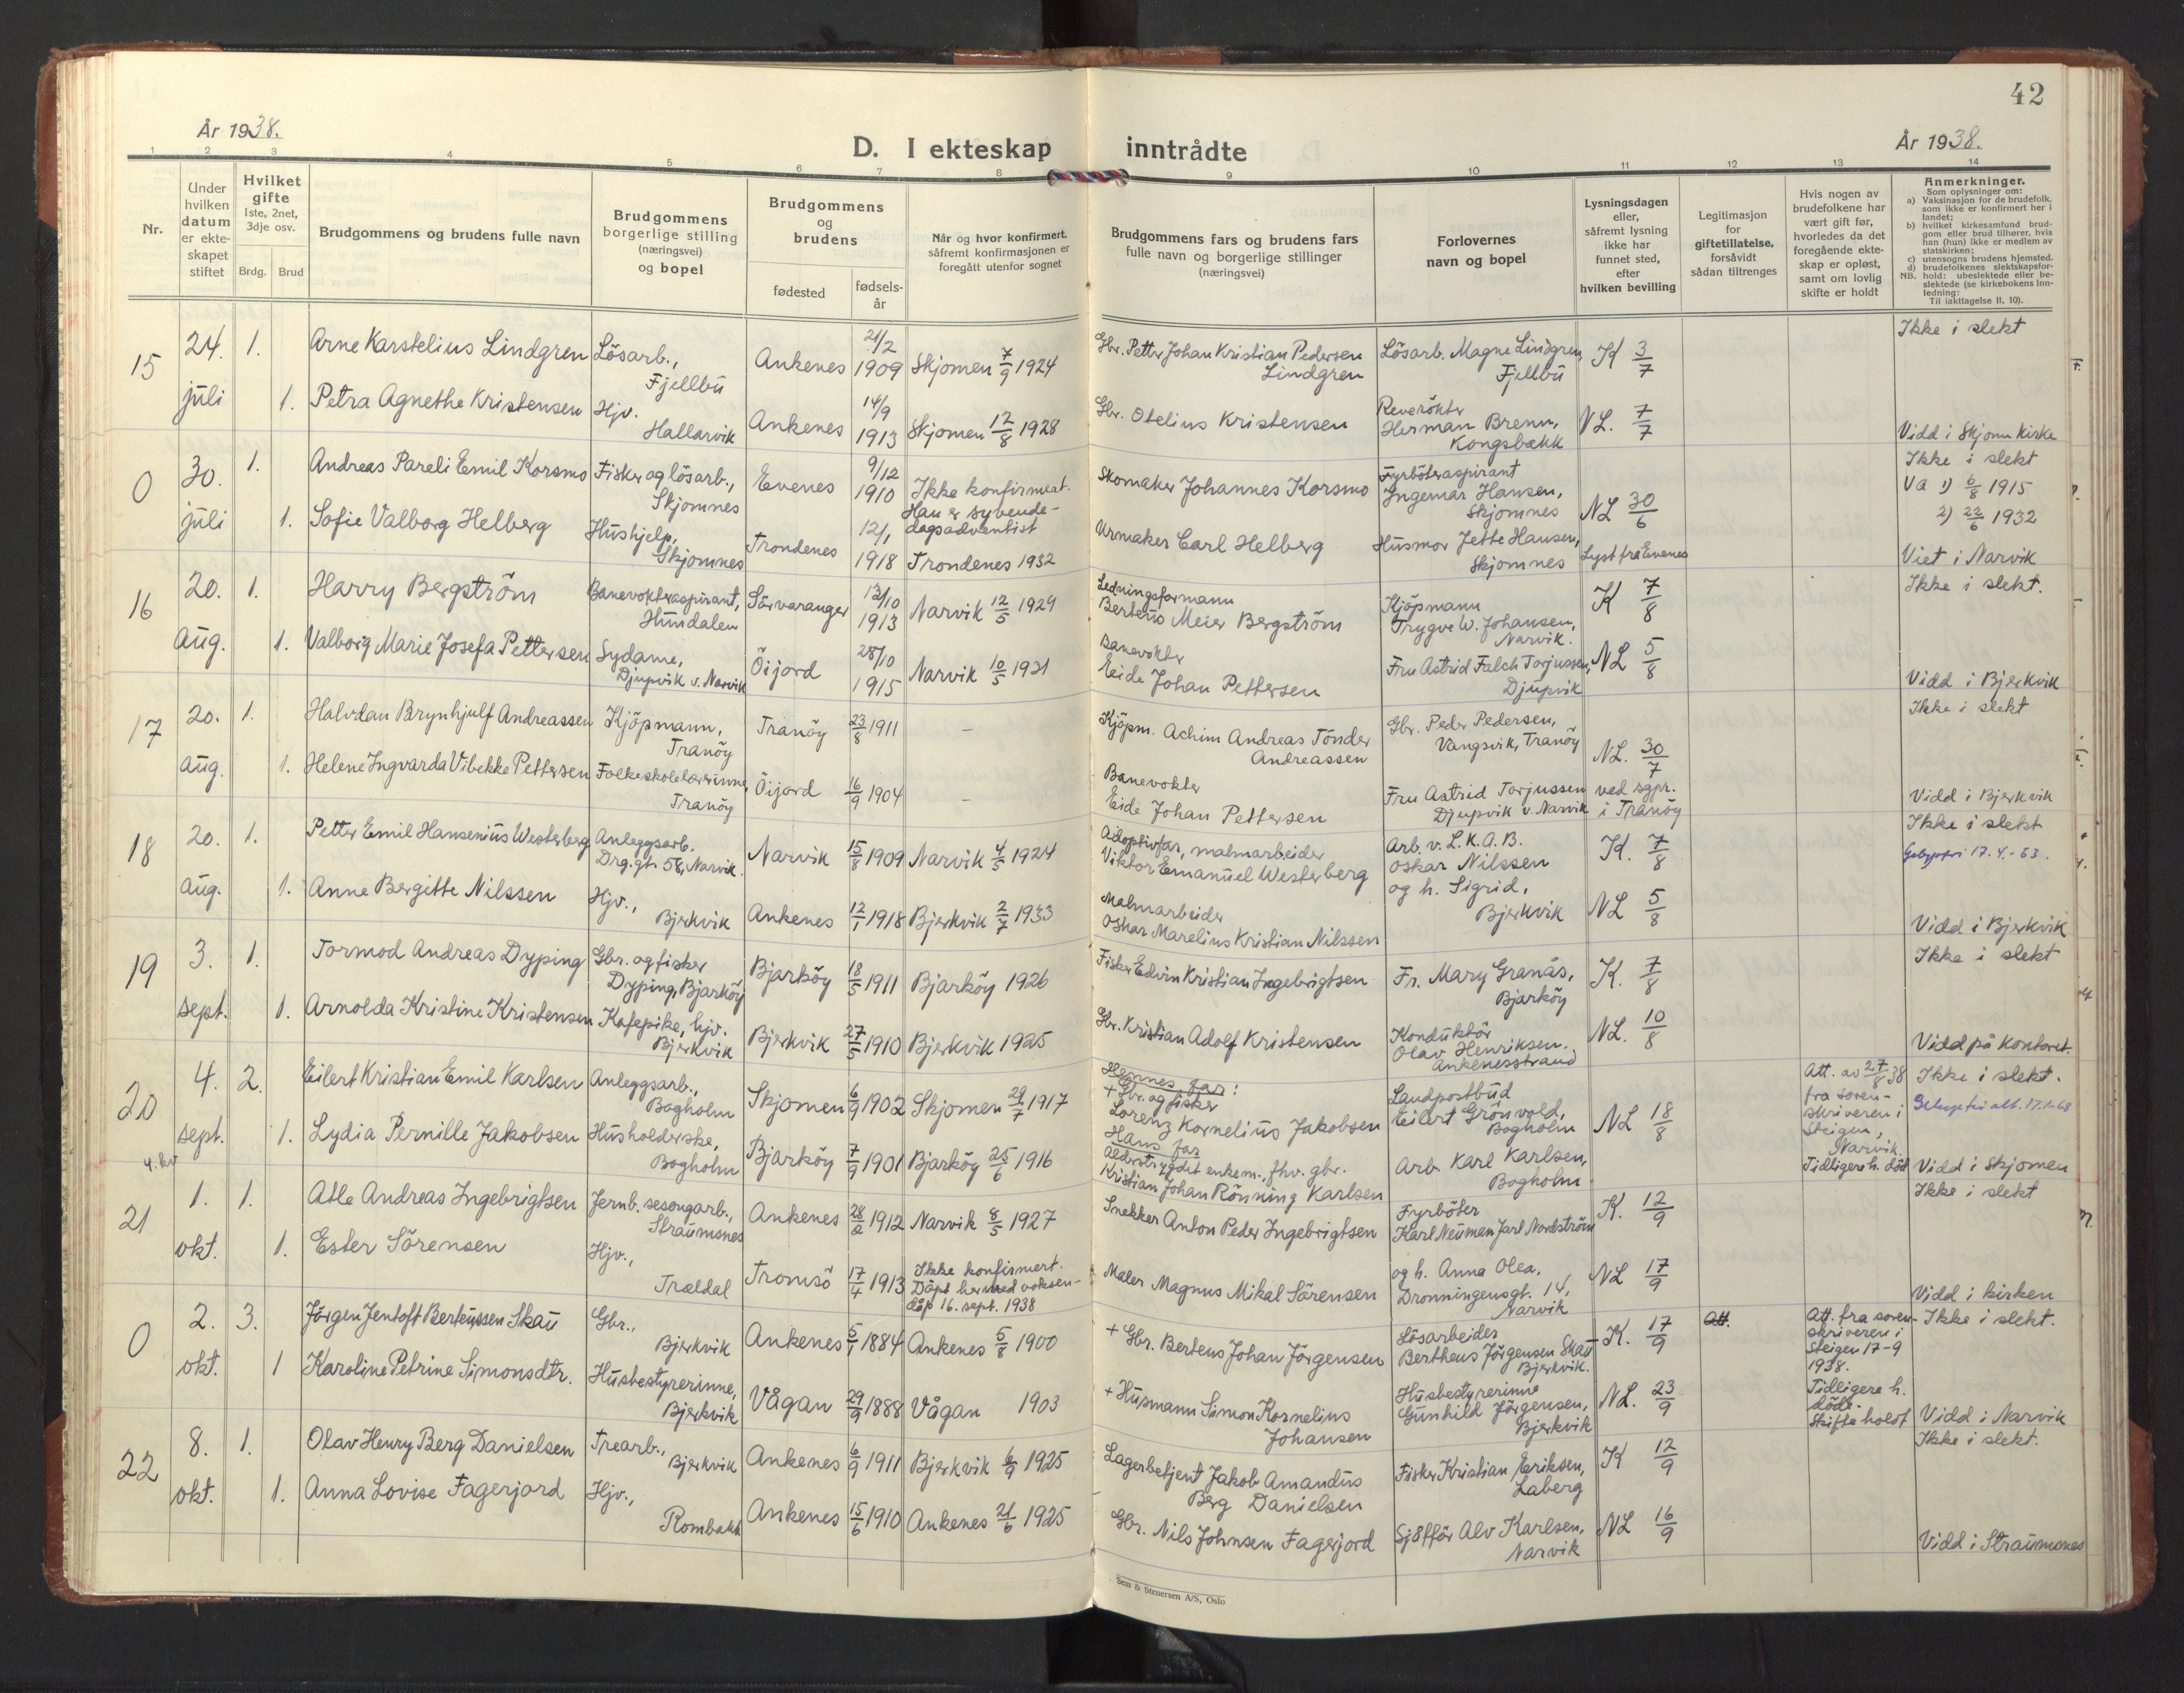 42
År 1938.
D. I ekteskap inntrådte
År 1938.
1 2 3 4 5 6 7 8 9 10 11 12 13 14
Nr.
Under hvilken datum er ekteskapet stiftet
Hvilket gifte
1ste, 2net, 3dje osv.
Brdg. Brud
Brudgommens og brudens fulle navn
Brudgommens borgerlige stilling (næringsvei) og bopel
Brudgommens og brudens
fødested
fødselsår
Når og hvor konfirmert, såfremt konfirmasjonen er foregått utenfor sognet
Brudgommens fars og brudens fars fulle navn og borgerlige stillinger (næringsvei)
Forlovernes navn og bopel
Lysningsdagen eller, såfremt lysning ikke har funnet sted, efter hvilken bevilling
Legitimasjon for giftetillatelse, forsåvidt sådan tiltrenges
Hvis nogen av brudefolkene har vært gift før, hvorledes da det foregående ekteskap er opløst, samt om lovlig skifte er holdt
Anmerkninger.
Som oplysninger om:
a) Vaksinasjon for de brudefolk, som ikke er konfirmert her i landet;
b) hvilket kirkesamfund brudgom eller brud tilhører, hvis han (hun) ikke er medlem av statskirken;
c) utensogns brudens hjemsted.
d) brudefolkenes slektskapsforhold: ubeslektede eller beslektede (se kirkebokens Innledning:
NB.
Til iakttagelse II. 10).
15 24. juli 1. Arne Karstelius Lindgren Lösarb., Fjellbu Ankenes 21/2 1909 Skjomen 7/9 1924 Gbr. Petter Johan Kristian Pedersen Lindgren Lösarb. Magne Lindgren, Fjellbu K 3/7 Ikke i slekt
1. Petra Agnethe Kristensen Hjv. Hallarvik Ankenes 14/9 1913 Skjomen 12/8 1928 Gbr. Otelius Kristensen Reverökter Herman Brenn, Kongsbakk NL. 7/7 Vidd i Skjomen Kirke
0 30. juli 1. Andreas Pareli Emil Korsmo Fisker og lösarb., Skjomnes Evenes 9/12 1910 Ikke konfirmert. Han er syvendedagsadventist Skomaker Johannes Korsmo Fyrböteraspirant Ingemar Hansen, Skjomnes NL 30/6 Ikke i slekt Va 1) 6/8 1915 2) 22/6 1932
1. Sofie Valborg Helberg Hushjelp, Skjomnes Trondenes 12/1 1918 Trondenes 1932 Urmaker Carl Helberg Husmor Jette Hansen, Skjomnes Lyst fra Evenes Viet i Narvik
16 20. aug. 1. Harry Bergström Banevokteraspirant, Hundalen Sörvaranger 13/10 1913 Narvik 12/5 1929 Ledningsformann Berteus Meier Bergström Kjöpmann Trygve W. Johansen, Narvik. K 7/8 Ikke i slekt.
1. Valborg Marie Josefa Pettersen Sydame, Djupvik v. Narvik Öijord 28/10 1915 Narvik 10/5 1931 Banevokter Eide Johan Pettersen Fru Astrid Falch Torjussen, Djupvik NL 5/8 Vidd i Bjerkvik
17 20. aug. 1. Halvdan Brynhjulf Andreassen Kjöpmann, Tranöy Tranöy 23/8 1911 – Kjöpm. Achim Andreas Tönder Andreassen Gbr. Peder Pedersen, Vangsvik, Tranöy NL. 30/7 Ikke i slekt
1. Helene Ingvarda Vibekke Pettersen Folkeskolelærerinne, Tranöy Öijord 16/9 1904 – Banevokter Eide Johan Pettersen Fru Astrid Torjussen Djupvik v. Narvik ved sgpr. i Tranöy Vidd i Bjerkvik
18 20. aug. 1. Petter Emil Hansenius Westerberg Anleggsarb. Drg. gt. 58, Narvik. Narvik 15/8 1909 Narvik 4/5 1924 Adoptivfar, malmarbeider Viktor Emanuel Westerberg Arb. v. L.K.A.B. Oskar Nilssen K. 7/8 Ikke i slekt 17.4.-63.
1. Anne Bergitte Nilssen Hjv., Bjerkvik Ankenes 12/1 1918 Bjerkvik 2/7 1933 Malmarbeider Oskar Marelius Kristian Nilssen og h. Sigrid, Bjerkvik NL 5/8 Vidd i Bjerkvik
19 3. sept. 1. Tormod Andreas Dyping Gbr. og fisker Dyping, Bjarköy Bjarköy 18/5 1911 Bjarköy 1926 Fisker Edvin Kristian Ingebrigtsen Fr. Mary Granås, Bjarköy K. 7/8 Ikke i slekt
1. Arnolda Kristine Kristensen Kafepike, hjv. Bjerkvik Bjerkvik 27/5 1910 Bjerkvik 1925 Gbr. Kristian Adolf Kristensen Konduktör Olav Henriksen. Ankenesstrand NL. 10/8 Vidd på kontoret.
20 4. sept. 2. Eilert Kristian Emil Karlsen Anleggsarb., Bogholm Skjomen 6/9 1902 Skjomen 29/7 1917 Hennes far: + Gbr. og fisker Lorenz Kornelius Jakobsen Landpostbud Eilert Grönvold, Bogholm NL 18/8 Att. av 27/8 38 fra sorenskriveren i Steigen, Narvik. Tidligere h. död Ikke i slekt.
1. Lydia Pernille Jakobsen Husholderske, Bogholm Bjarköy 7/9 1901 Bjarköy 25/6 1916 Hans far Alderstrygdet enkem., fhv. gbr. Kristian Johan Rönning Karlsen Arb. Karl Karlsen, Bogholm Vidd i Skjomen
21 1. okt. 1. Atle Andreas Ingebrigtsen Jernb. sesongarb., Straumsnes Ankenes 28/2 1912 Narvik 8/5 1927 Snekker Anton Peder Ingebrigtsen Fyrböter Karl Neuman Jarl Nordström K. 12/9 Ikke i slekt
1. Ester Sörensen Hjv., Trældal Tromsö 17/4 1913 Ikke konfirmert. Döpt her med voksendåp 16. sept. 1938 Maler Magnus Mikal Sörensen og h. Anna Olea, Dronningensgt. 14, Narvik NL 17/9 Vidd i kirken
0 2. okt. 3. Jörgen Jentoft Berteussen Skau Gbr., Bjerkvik Ankenes 5/1 1884 Ankenes 5/8 1900 + Gbr. Berteus Johan Jörgensen Lösarbeider Bertheus Jörgensen Skau Bjerkvik. K. 17/9 Att. Att. fra sorenskriveren i Steigen 17-9 1938. Tidligere h. döde. Skifte holdt Ikke i slekt.
1 Karoline Petrine Simonsdtr. Husbestyrerinne, Bjerkvik Vågan 29/9 1888 Vågan 1903 + Husmann Simon Kornelius Johansen Husbestyrerinne Gunhild Jörgensen, Bjerkvik NL. 23/9 Vidd i Narvik
22 8. okt. 1. Olav Henry Berg Danielsen Trearb., Bjerkvik Ankenes 6/9 1911 Bjerkvik 6/9 1925 Lagerbetjent Jakob Amandus Berg Danielsen Fisker Kristian Eriksen, Laberg K 12/9 Ikke i slekt.
1. Anna Lovise Fagerjord Hjv., Rombakk Ankenes 15/6 1910 Ankenes 21/6 1925 Gbr. Nils Johnsen Fagerjord Sjåfför Alv Karlsen, Narvik NL 16/9 Vidd i Straumsnes
Sem & Stenersen A/S, Oslo